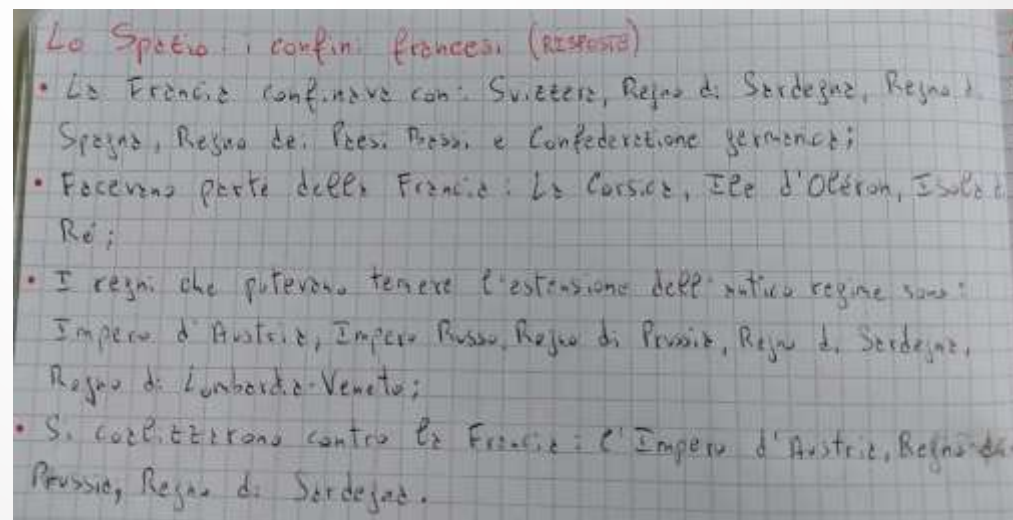 Lo Spazio: i confini francesi (RISPOSTE)
• La Francia confinava con: Svizzera, Regno di Sardegna, Regno di
Spagna, Regno dei Paesi Bassi e Confederazione germanica;
• Facevano parte della Francia: La Corsica, Ile d'Oléron, Isola di
Ré;
• I regni che potevano temere l'estensione dell'antico regime sono:
Impero d'Austria, Impero Russo, Regno di Prussia, Regno di Sardegna,
Regno di Lombardia-Veneto;
• Si coalizzarono contro la Francia: l'Impero d'Austria, Regno di
Prussia, Regno di Sardegna.